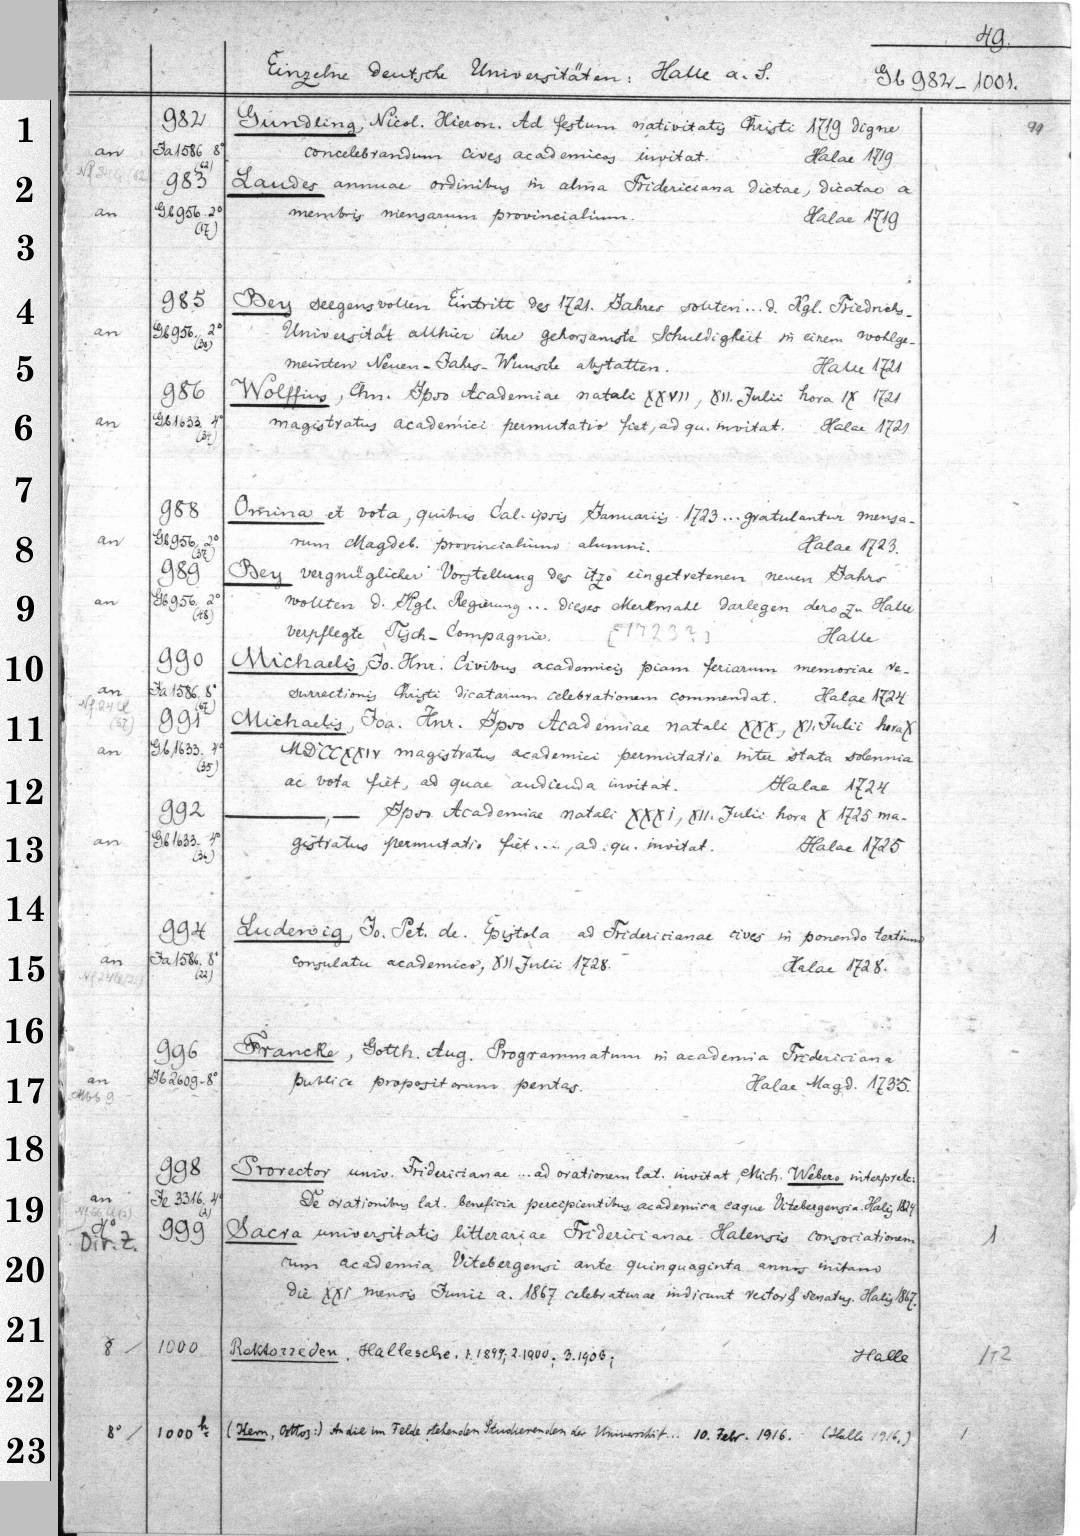 49.
Einzelne deutsche Universitäten: Halle a. S. Gb 982 – 1001.
1 982 Gundling, Nicol. Hieron. Ad festum nativitatis Christi 1719 digne
an Ja 1586 8° (62) concelebrandum cives academicos invitat. Halae 1719
2 983 Laudes annuae ordinibus in alma Fridericiana dictae, dicatae a
an Gb 956. 2° (17) membris mensarum provincialium. Halae 1719
3
4 985 Bey seegensvollen Eintritt des 1721. Jahres sollten ... d. Kgl. Friedrichs-
an Gb 956. 2° Universität allhier ihre gehorsamste Schuldigkeit in einem wohlge-
5 meinten Neuen-Jahrs-Wunsche abstatten. Halle 1721
986 Wolffius, Chn. Ipso Academiae natali XXVII, XII. Julii hora IX 1721
6 an Gb 1633. 4° magistratus academici permutatio fiet, ad qu. invitat. Halae 1721
7
988 Omina et vota, quibus Cal. ipsis Januariis 1723 ... gratulantur mensa-
8 an Gb 956. 2° (37) rum Magdeb. provincialium alumni. Halae 1723.
989 Bey vergnüglicher Vorstellung des itzo eingetretenen neuen Jahrs
9 an Gb 956. 2° (48) wollten d. Kgl. Regierung ... dieses Merkmahl darlegen dero zu Halle
verpflegte Tisch-Compagnie. [1723?] Halle
10 990 Michaelis, Jo. Hnr. Civibus academicis piam feriarum memoriae re-
an Ja 1586. 8° (67) surrectionis Christi dicatarum celebrationem commendat. Halae 1724
11 991 Michaelis, Joa. Hnr. Ipso Academiae natali XXX, XI. Julii hora X
an Gb 1633. 4° (35) MDCCXXIV magistratus academici permutatio inter stata solennia
12 ac vota fiet, ad quae audienda invitat. Halae 1724
992 ———, — Ipso Academiae natali XXXI, XII. Julii hora X 1725 ma-
13 an Gb 1633. 4° (36) gistratus permutatio fiet ..., ad qu. invitat. Halae 1725
14
994 Ludewig, Jo. Pet. de. Epistola ad Fridericianae cives in ponendo tertium
15 an Ja 1586. 8° (22) consulatu academico, XII Julii 1728. Halae 1728.
16
996 Francke, Gotth. Aug. Programmatum in academia Fridericiana
17 an Jb 2609. 8° publice propositorum pentas. Halae Magd. 1735.
18
998 Prorector univ. Fridericianae ... ad orationem lat. invitat, Mich. Webero interprete:
19 an Je 3316. 4° (2) De orationibus lat. beneficia percipientibus academica eaque Vitebergensia. Halis 1824
4° Div. Z. 999 Sacra universitatis litterariae Fridericianae Halensis consociationem 1
20 cum academia Vitebergensi ante quinquaginta annos initam
die XXI mensis Junii a. 1867 celebraturae indicunt rector & senatus. Halis 1867.
21
8 1000 Rektorreden, Hallesche. 1. 1899; 2. 1900; 3. 1906; Halle 1+2
22
23 8° 1000 h (Hern, Ottos:) An die im Felde stehenden Studierenden der Universität... 10. Febr. 1916. (Halle 1916.) 1